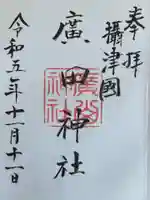 奉拝
攝津國
廣田神社
廣田神社
令和五年十一月十一日